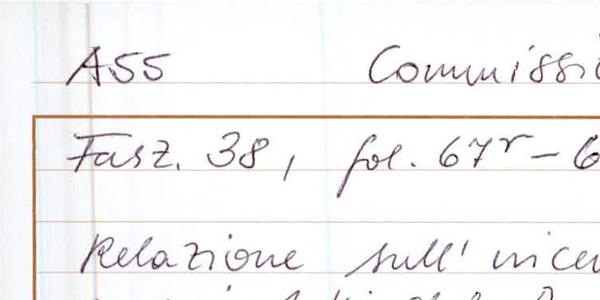 A55 Commissi
Fasz. 38, fol. 67r - 6
Relazione sull'